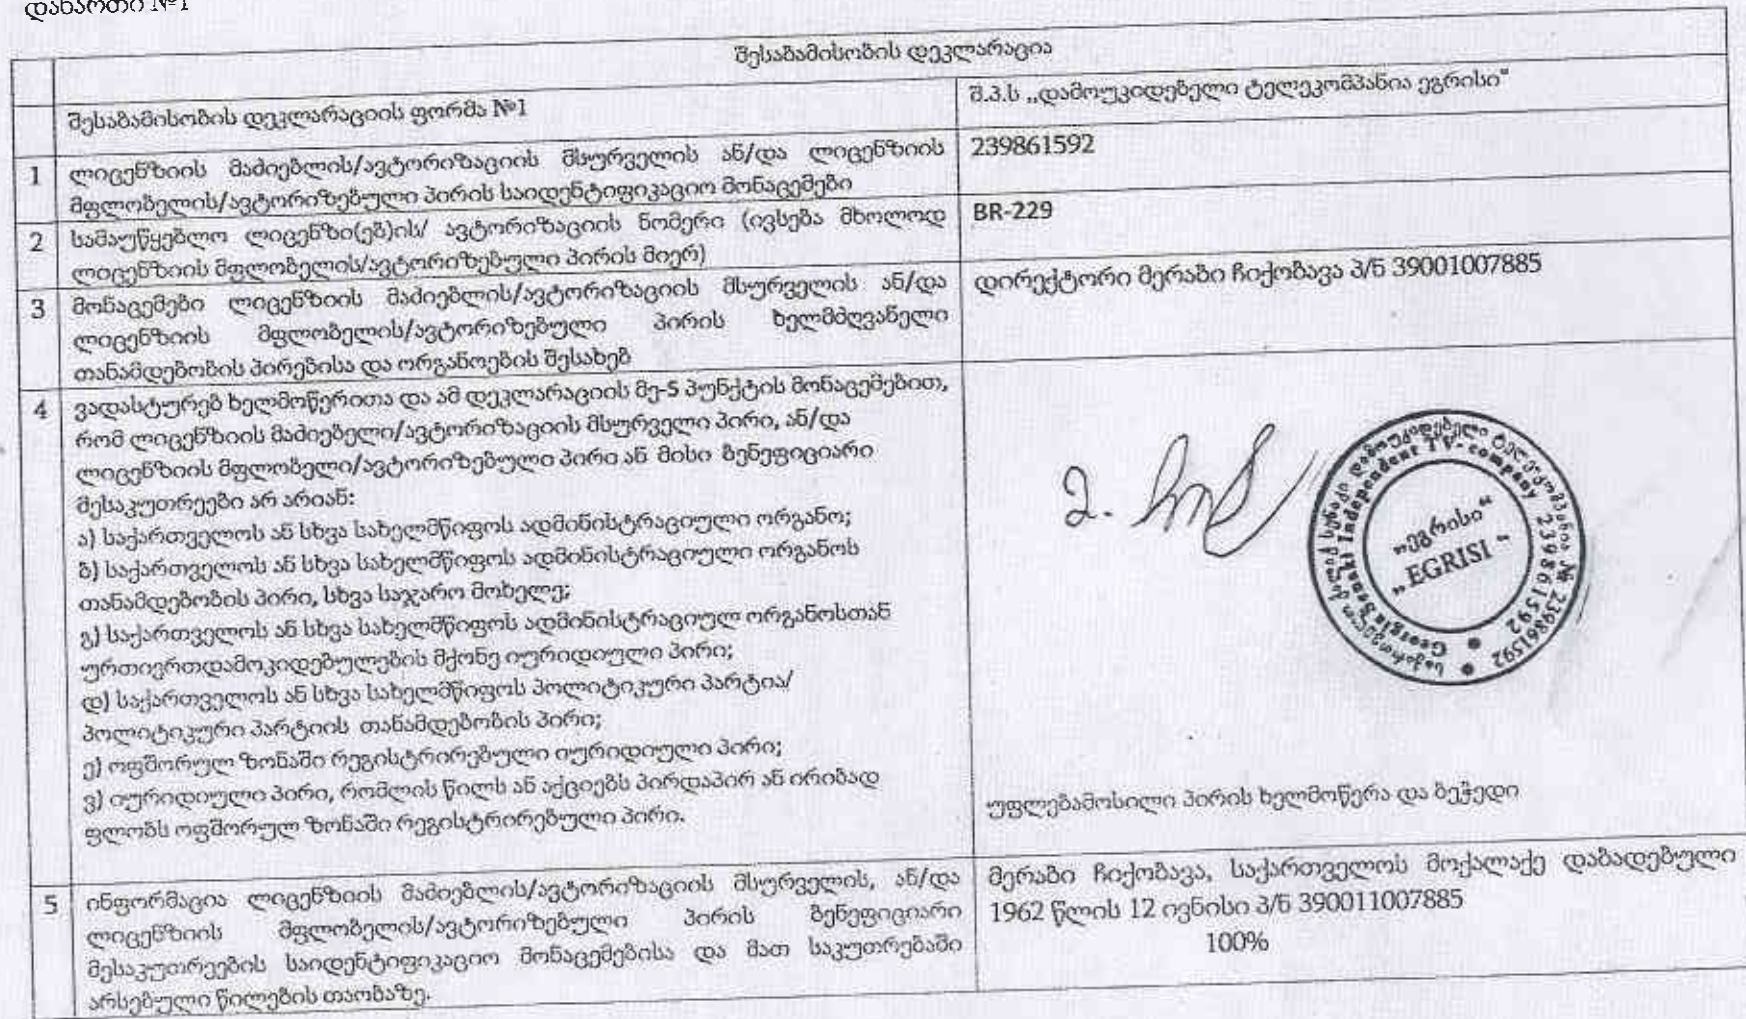 დანართი №1
შესაბამისობის დეკლარაცია
შესაბამისობის დეკლარაციის ფორმა №1
შ.პ.ს „დამოუკიდებელი ტელეკომპანია ეგრისი"
1
ლიცენზიის მაძიებლის/ავტორიზაციის მსურველის ან/და ლიცენზიის
მფლობელის/ავტორიზებული პირის საიდენტიფიკაციო მონაცემები
239861592
2
სამაუწყებლო ლიცენზი(ებ)ის/ ავტორიზაციის ნომერი (ივსება მხოლოდ
ლიცენზიის მფლობელის/ავტორიზებული პირის მიერ)
BR-229
3
მონაცემები ლიცენზიის მაძიებლის/ავტორიზაციის მსურველის ან/და
ლიცენზიის მფლობელის/ავტორიზებული პირის ხელმძღვანელი
თანამდებობის პირებისა და ორგანოების შესახებ
დირექტორი მერაბი ჩიქობავა პ/ნ 39001007885
4
ვადასტურებ ხელმოწერითა და ამ დეკლარაციის მე-5 პუნქტის მონაცემებით,
რომ ლიცენზიის მაძიებელი/ავტორიზაციის მსურველი პირი, ან/და
ლიცენზიის მფლობელი/ავტორიზებული პირი ან მისი ბენეფიციარი
მესაკუთრეები არ არიან:
ა) საქართველოს ან სხვა სახელმწიფოს ადმინისტრაციული ორგანო;
ბ) საქართველოს ან სხვა სახელმწიფოს ადმინისტრაციული ორგანოს
თანამდებობის პირი, სხვა საჯარო მოხელე;
გ) საქართველოს ან სხვა სახელმწიფოს ადმინისტრაციულ ორგანოსთან
ურთიერთდამოკიდებულების მქონე იურიდიული პირი;
დ) საქართველოს ან სხვა სახელმწიფოს პოლიტიკური პარტია/
პოლიტიკური პარტიის თანამდებობის პირი;
ე) ოფშორულ ზონაში რეგისტრირებული იურიდიული პირი;
ვ) იურიდიული პირი, რომლის წილს ან აქციებს პირდაპირ ან ირიბად
ფლობს ოფშორულ ზონაში რეგისტრირებული პირი.
დამოუკიდებელი ტელეკომპანია № 239861592
Georgia Senaki Independent TV- company 239861592
„ეგრისი“
“ EGRISI “
უფლებამოსილი პირის ხელმოწერა და ბეჭედი
5
ინფორმაცია ლიცენზიის მაძიებლის/ავტორიზაციის მსურველის, ან/და
ლიცენზიის მფლობელის/ავტორიზებული პირის ბენეფიციარი
მესაკუთრეების საიდენტიფიკაციო მონაცემებისა და მათ საკუთრებაში
არსებული წილების თაობაზე.
მერაბი ჩიქობავა, საქართველოს მოქალაქე დაბადებული
1962 წლის 12 ივნისი პ/ნ 390011007885
100%